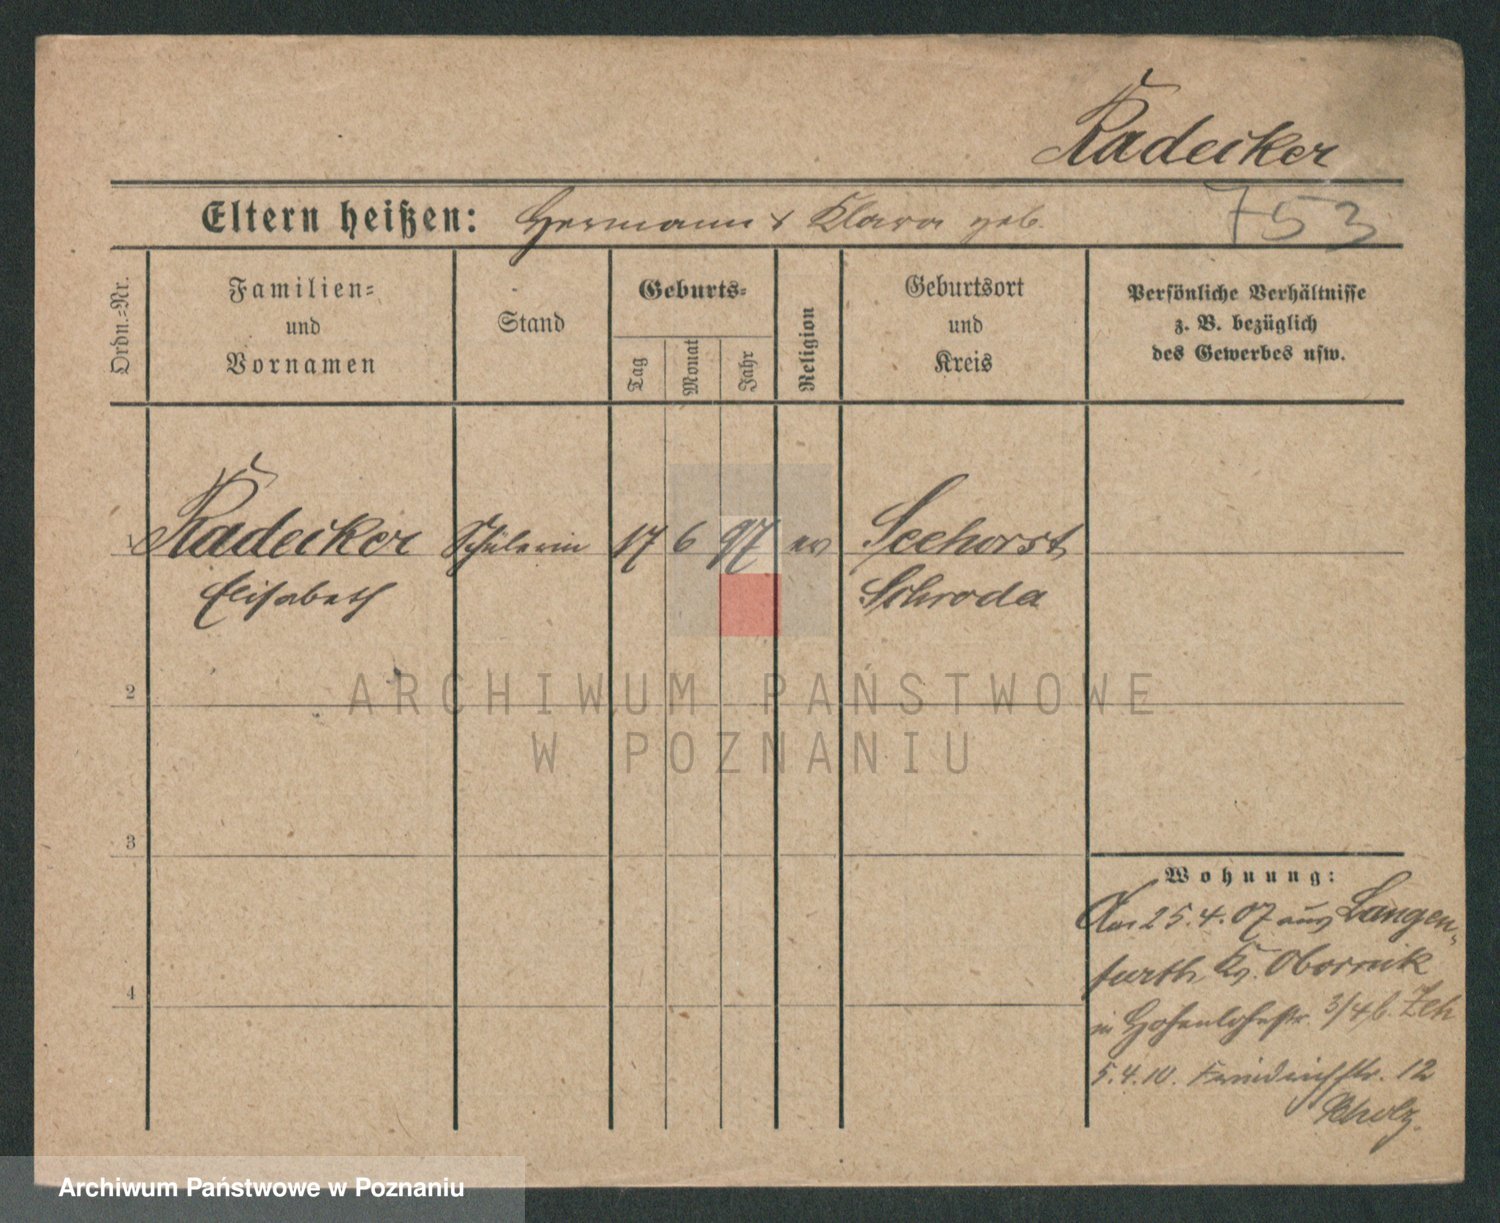 Radecker
Eltern heißen: Hermann & Klara geb.
753
Ordn.=Nr.
Familien=
und
Vornamen
Stand
Geburts=
Tag
Monat
Jahr
Religion
Geburtsort
und
Kreis
Persönliche Verhältnisse
z. B. bezüglich
des Gewerbes usw.
1 Radecker Schülerin 17 6 97 ev Seehorst
Elisabeth Schroda
2
ARCHIWUM PAŃSTWOWE
W POZNANIU
3
Wohnung:
Am 25.4.07 aus Langen-
furth, Kr. Obornik
4
in Hohenlohestr. 3/4 b. Zeh
5.4.10. Friedrichstr. 12
Scholz.
Archiwum Państwowe w Poznaniu